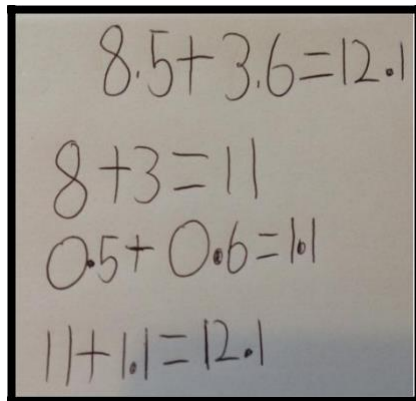 8.5+3.6=12.1
8+3=11
0.5+0.6=1.1
11+1.1=12.1